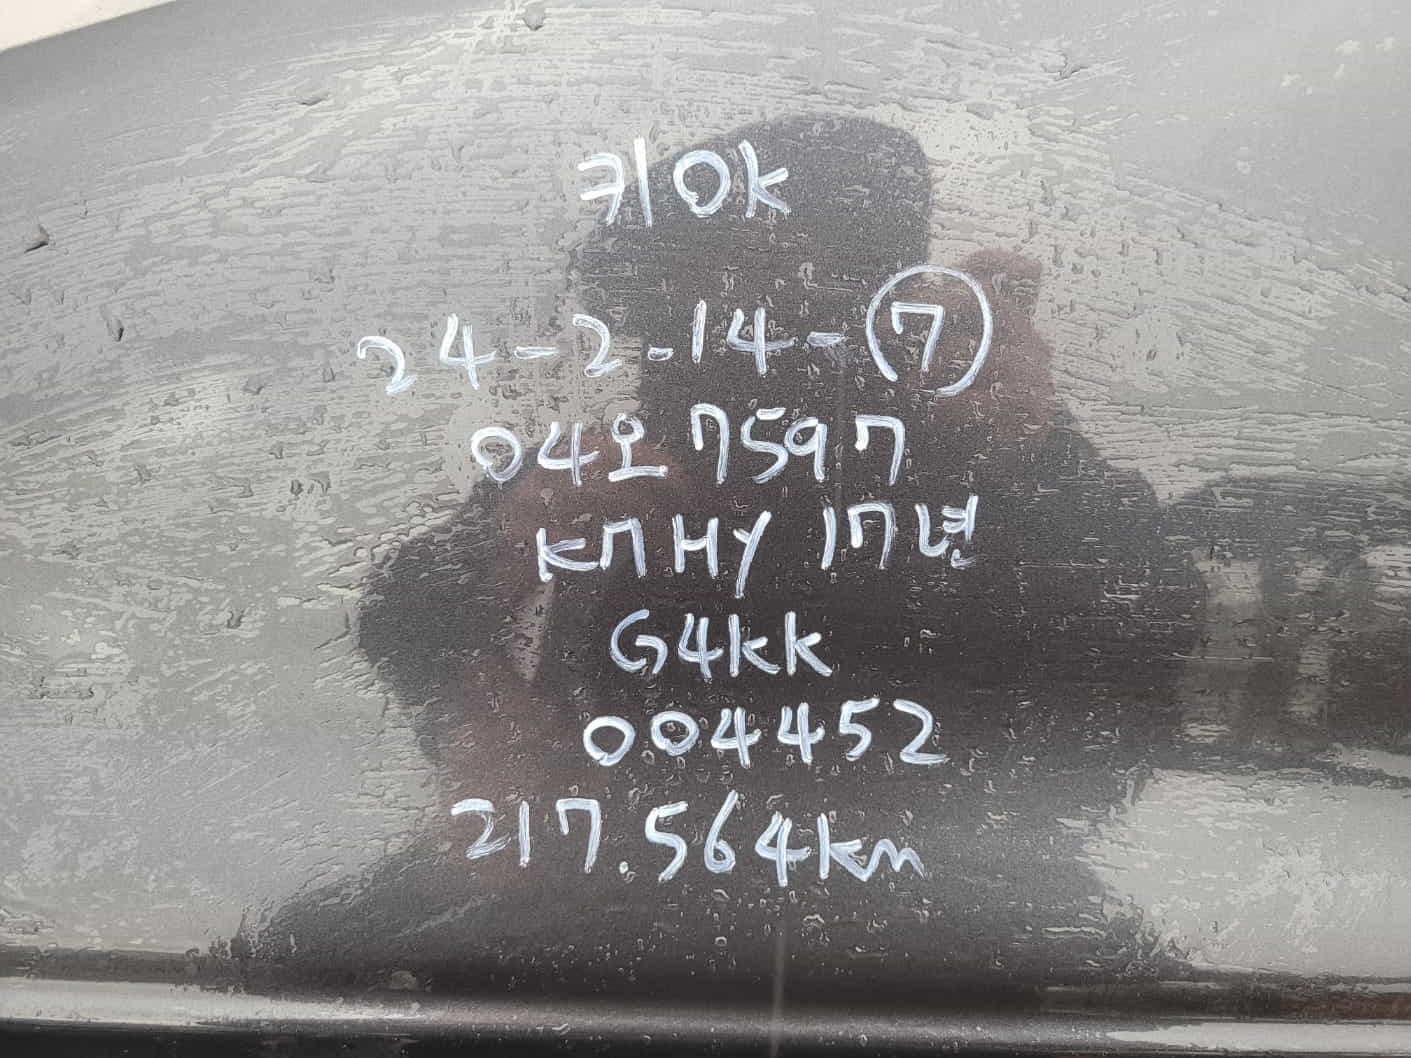 키OK
24-2-14-⑦
04오7597
KMHY 17년
G4KK
004452
217.564km